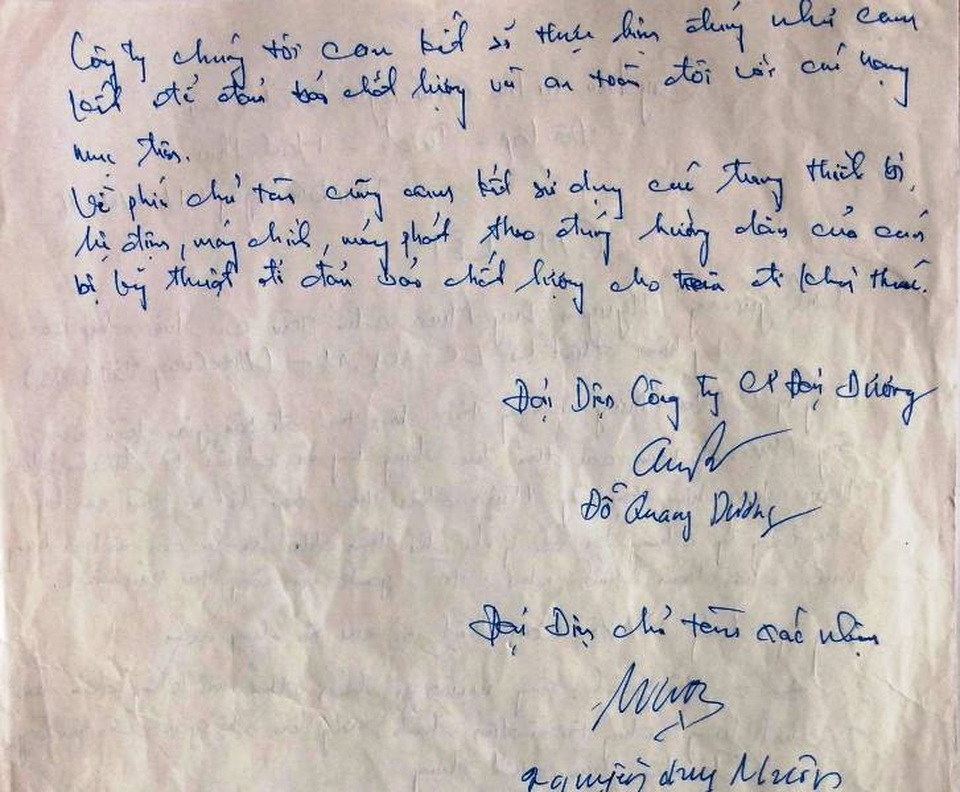 Công ty chúng tôi cam kết sẽ thực hiện đúng như cam
kết để đảm bảo chất lượng và an toàn đối với các hạng
mục trên.
Về phía chủ tàu cũng cam kết sử dụng các trang thiết bị,
hệ điện, máy chính, máy phát theo đúng hướng dẫn của cán
bộ kỹ thuật để đảm bảo chất lượng cho tàu đi khai thác.
Đại Diện Công ty CP Đại Dương
Đỗ Quang Dương
Đại Diện chủ tàu xác nhận
Nguyễn duy Muôn